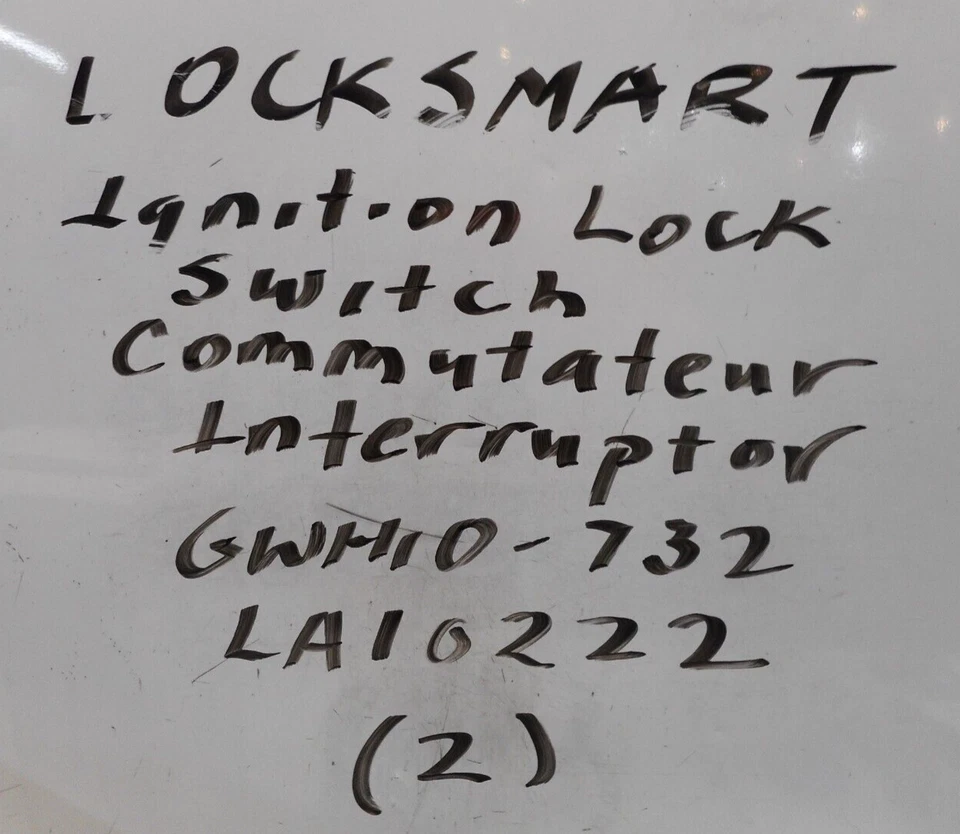 LOCKSMART
Ignition Lock
Switch
Commutateur
Interruptor
GWH10-732
LA10222
(2)